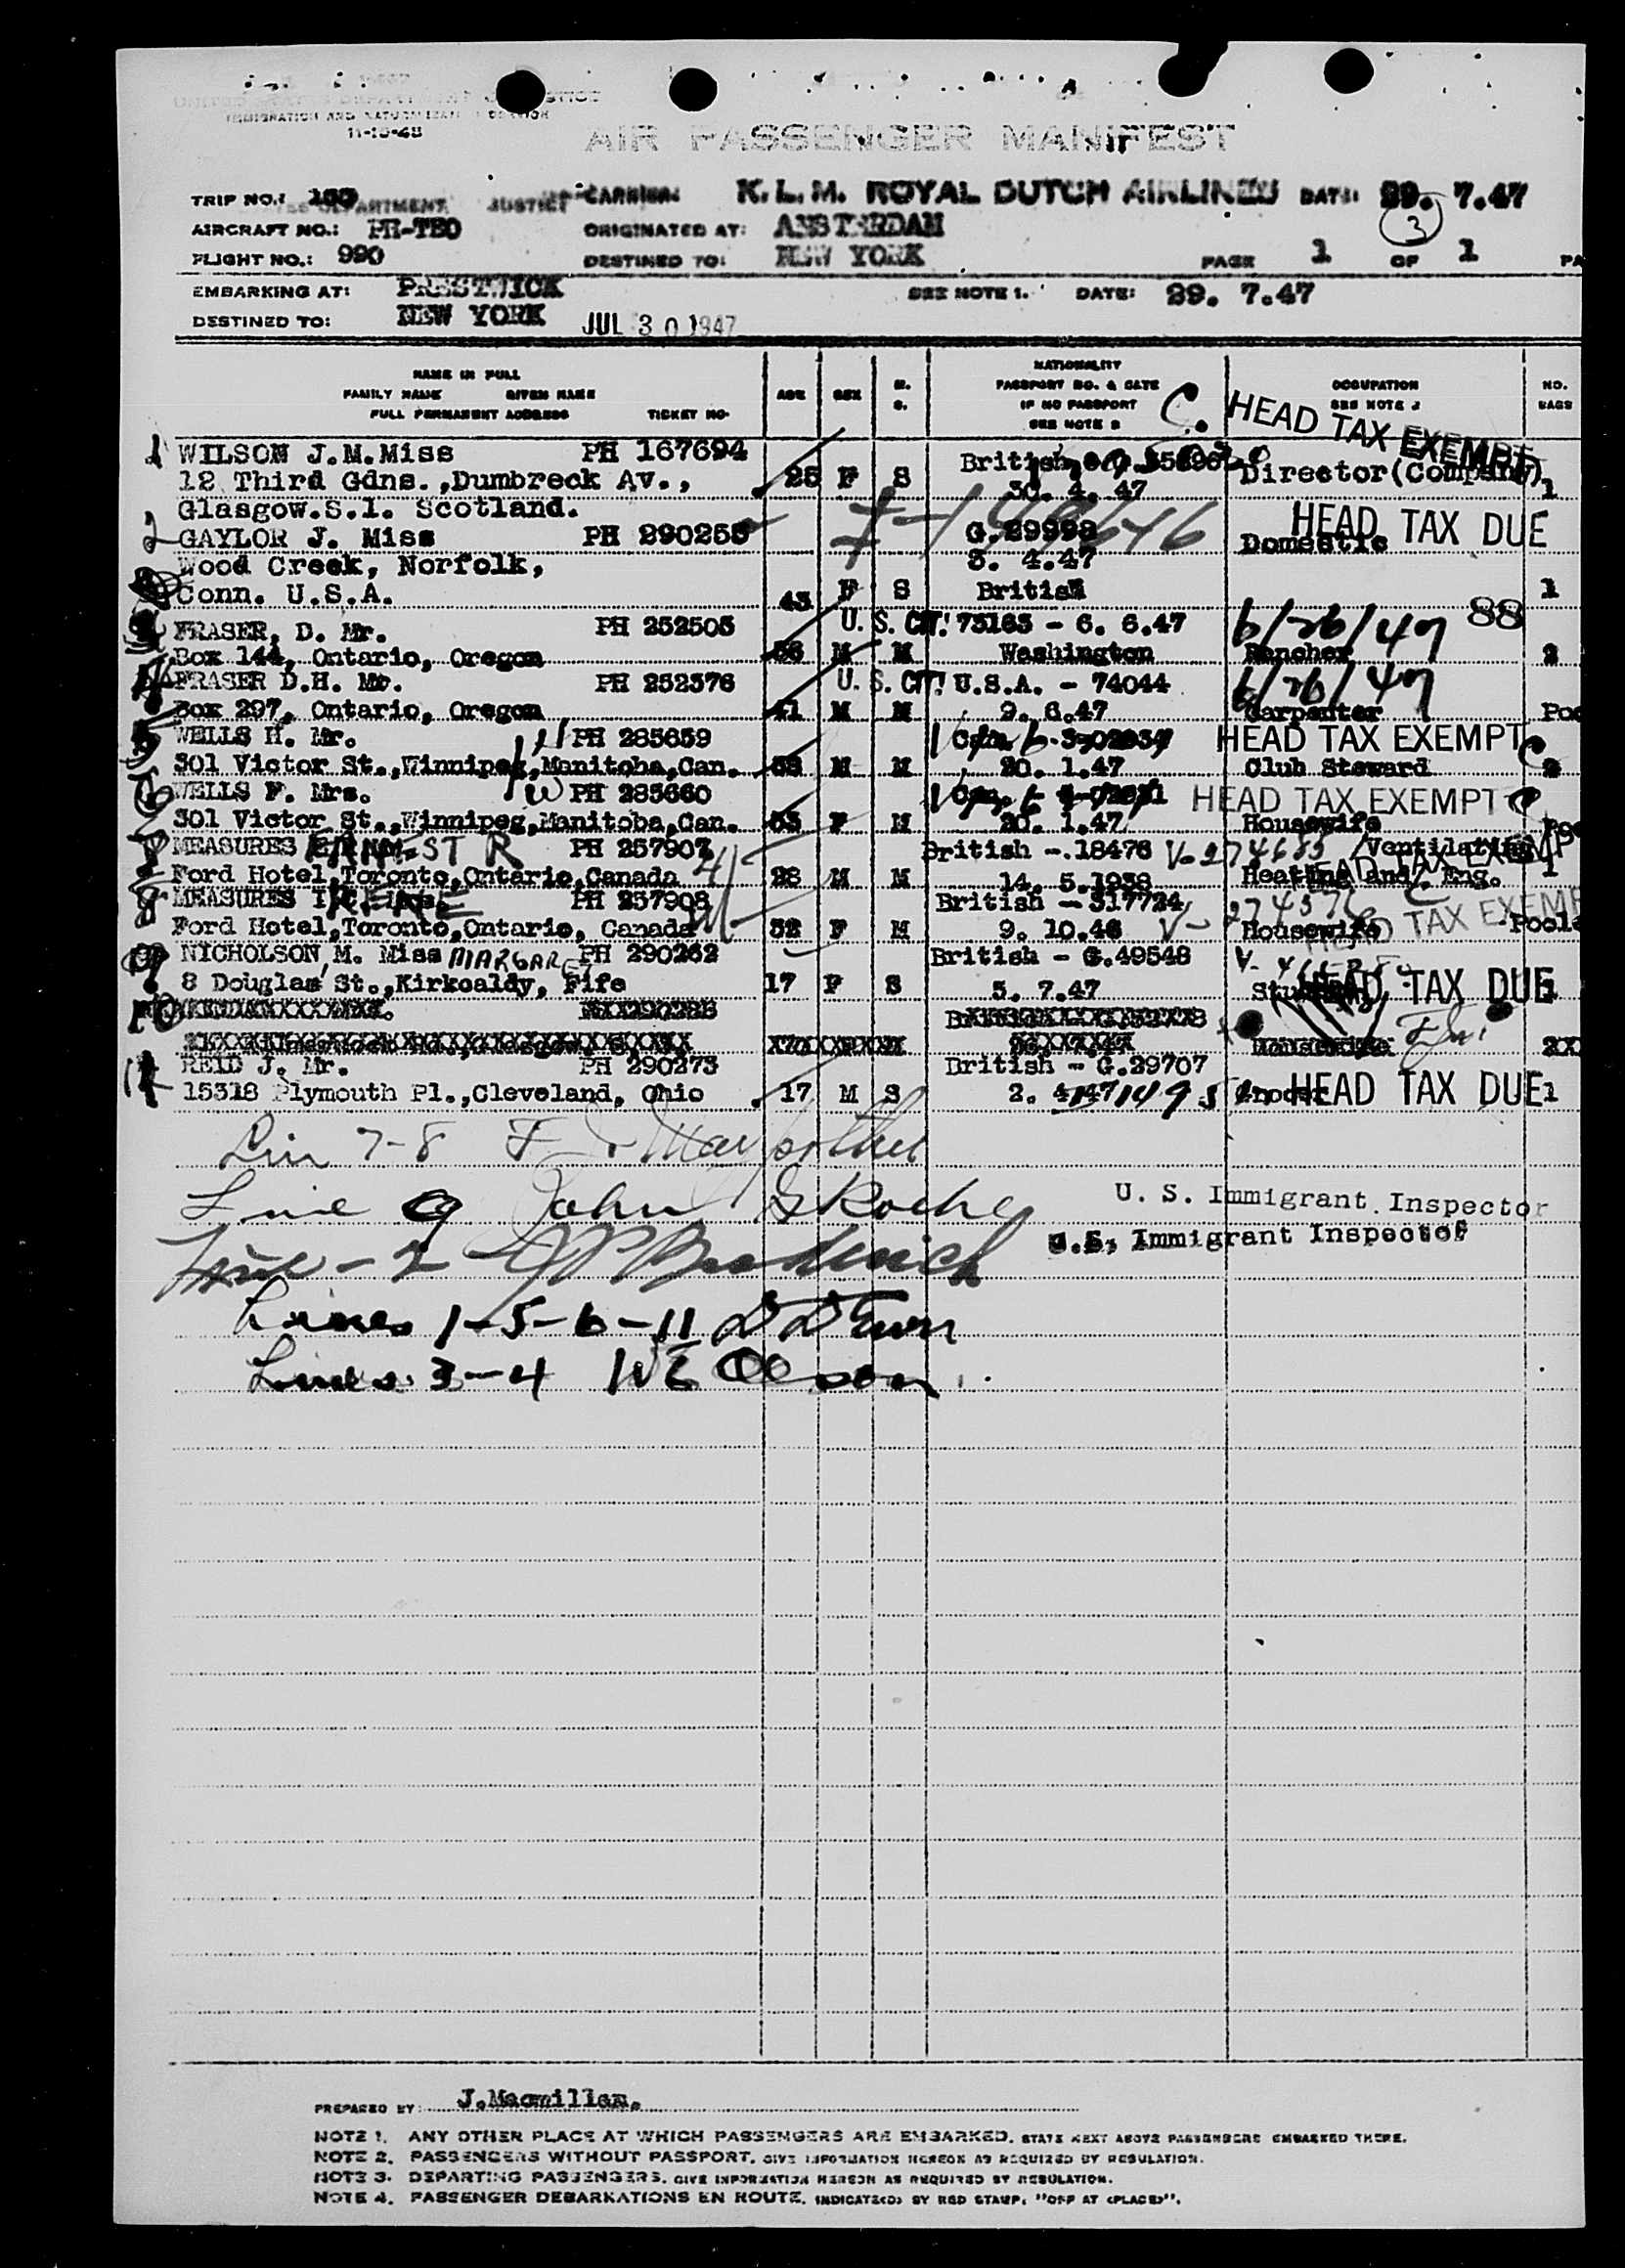 11-10-48
AIR PASSENGER MANIFEST
TRIP NO.: CARRIER: K.L.M. ROYAL DUTCH AIRLINES DATE: 29. 7.47
3
AIRCRAFT NO.: PH-TBO ORIGINATED AT: AMSTERDAM
FLIGHT NO.: 990 DESTINED TO: NEW YORK PAGE 1 OF 1
EMBARKING AT: PRESTWICK SEE NOTE 1. DATE: 29. 7.47
DESTINED TO: NEW YORK JUL 30 1947
NAME IN FULL
FAMILY NAME GIVEN NAME
FULL PERMANENT ADDRESS TICKET NO.
AGE SEX M. S.
NATIONALITY
PASSPORT NO. & DATE
IF NO PASSPORT
SEE NOTE 2
OCCUPATION
SEE NOTE 3
NO. BAGS
HEAD TAX EXEMPT
1 WILSON J.M.Miss PH 167694 British
12 Third Gdns.,Dumbreck Av., F S 30. 4. 47 Director(Company) 1
Glasgow.S.1. Scotland.
2 GAYLOR J. Miss PH G.29998 Domestic HEAD TAX DUE
Wood Creek, Norfolk, 3. 4.47
Conn. U.S.A. 43 F S British 1
FRASER, D. Mr. PH 252505 U. S. CIT. 73163 - 6. 6.47 6/26/47 88
Box 144, Ontario, Oregon M M Washington Rancher
FRASER D.H. Mr. PH 252376 U. S. CIT. U.S.A. - 74044 6/26/47
Box 297, Ontario, Oregon 41 M M 9. 6.47 Carpenter
5 WELLS H. Mr. PH 285659 HEAD TAX EXEMPT
301 Victor St.,Winnipeg,Manitoba,Can. M M 20. 1.47 Club Steward
6 WELLS F. Mrs. PH 285660 HEAD TAX EXEMPT
301 Victor St.,Winnipeg,Manitoba,Can. F M 20. 1.47 Housewife
MEASURES ERNEST R PH 257907 British - 18476 /Ventilating
Ford Hotel,Toronto,Ontario,Canada 28 M M 14. 5.1938 Heating and Eng. 1
8 MEASURES IRENE PH 257908 British - 317724
Ford Hotel,Toronto,Ontario, Canada 32 F M 9. 10.46 Housewife HEAD TAX EXEMP
9 NICHOLSON, M. Miss MARGARET PH 290262 British - G.49548
8 Douglas St.,Kirkcaldy, Fife 17 F S 5. 7.47 HEAD TAX DUE
10
11 REID J. Mr. PH 290273 British - G.29707
15318 Plymouth Pl.,Cleveland, Ohio 17 M S HEAD TAX DUE 1
Line 9 John S Roche U. S. Immigrant Inspector
Line - 2 U.S. Immigrant Inspector
Lines 1-5-6-11
Lines 3-4
PREPARED BY: J.Macmillan.
NOTE 1. ANY OTHER PLACE AT WHICH PASSENGERS ARE EMBARKED, STATE NEXT ABOVE PASSENGERS EMBARKED THERE.
NOTE 2. PASSENGERS WITHOUT PASSPORT, GIVE INFORMATION HEREON AS REQUIRED BY REGULATION.
NOTE 3. DEPARTING PASSENGERS, GIVE INFORMATION HEREON AS REQUIRED BY REGULATION.
NOTE 4. PASSENGER DEBARKATIONS EN ROUTE, INDICATE(D) BY RED STAMP, "OFF AT (PLACE)".